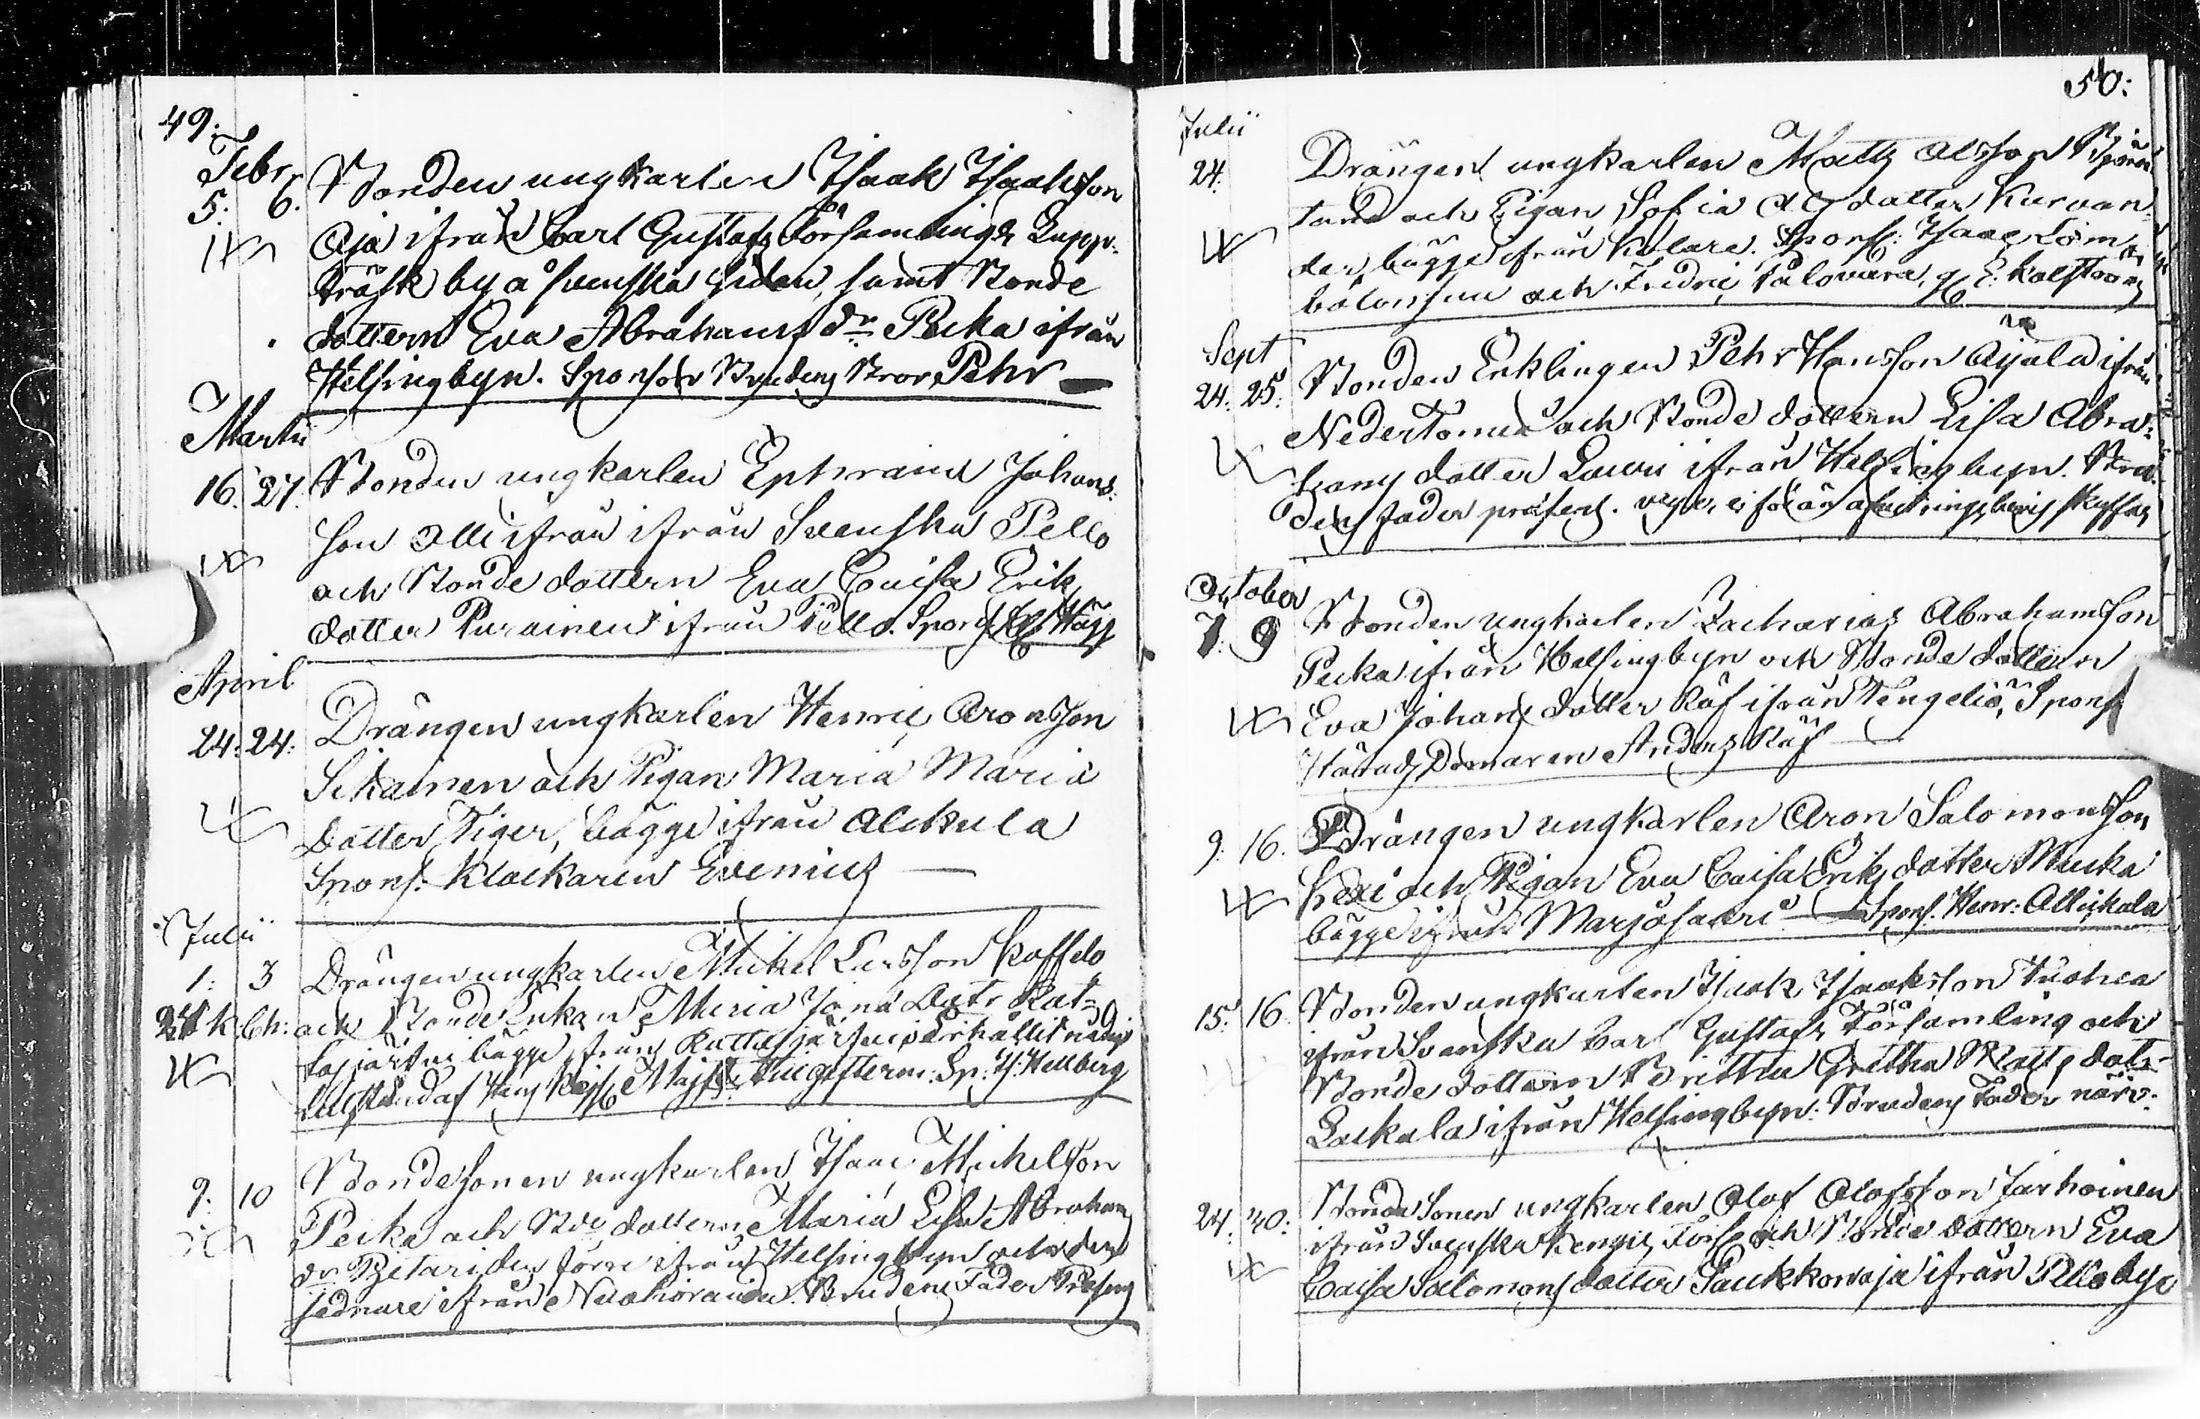 49:
Febr.
5: 6. Bonden ungkarlen Isaak Isaaksson
Aja ifrån Carl Gustafs Församlings Lupp-
träsk by å svenska sidan, samt Bonde
dottern Eva Abrahams dr Peka ifrån
Helsingbyn. Sponsor Brudens Bror Pehr
Martii
16. 27. Bonden ungkarlen Ephraim Johans-
son Olli ifrån ifrån Svenska Pello
och Bonde dottern Eva Caisa Eriks
dotter Purainen ifrån Pello. Spons. Hägg
April
24: 24: Drängen ungkarlen Henric Aronsson
Sikainen och Pigan Maria Maria
dotter Tiger, bägge ifrån Alckula
Spons: Klockaren Evenius
Julii
1: 3 Drängen ungkarlen Mickel Larsson Koffelo
och Bonde Enkan Maria Johns Dotr Rat-
tasjärfwi bägge ifrån Rattasjärfwi erhållit nådig
tillstånd af Hans Kejs. Majst Sp: H: Hellberg
9: 10 Bondesonen ungkarlen Isaac Mickelson
Peika och Bde dottern Maria Lisa Abrahams
dr Petari den förre ifrån Helsingbyn och den
sednare ifrån Nuohioranda. Brudens Fader Presens
50:
Julii
24. Drängen ungkarlen Matts Olsson
och Pigan Sofia dotter Kurvan-
der, bägge ifrån Kolare. Spons: Isaac Lom-
bolonsuu och Fredric Palovaara,
Sept
24. 25. Bonden Enklingen Pehr Hansson Aijala ifrån
Nedertorneå och Bonde dottern Lisa Abra-
hams dotter Lauri ifrån Helsingbyn. Bru-
dens fader præsens.
October
7: 9 Bonden ungkarlen Zacharias Abrahamsson
Peika ifrån Helsingbyn och Bonde dottern
Eva Johans dotter Räf ifrån Tengeliö, Spons
Härads Domaren Anders Räf
9: 16. Drängen ungkarlen Aron Salomonsson
Hexi och Pigan Eva Caisa Eriks dotter Mucka
bägge ifrån Marjosaari Spons. Henr: Allickala
15: 16. Bonden ungkarlen Isaak Isaaksson Vuohea
ifrån Svenska Carl Gustafs Församling och
Bonde dottern Britta Gretha Matts dotr
Lackala ifrån Helsingbyn. Brudens Fader närv:
24: 30: Bonde Sonen ungkarlen Olof Olofsson Jarhoinen
ifrån Svenska Kengis Förs. och Bonde dottern Eva
Caisa Salomons dotter Paukkowaja ifrån Pelloby